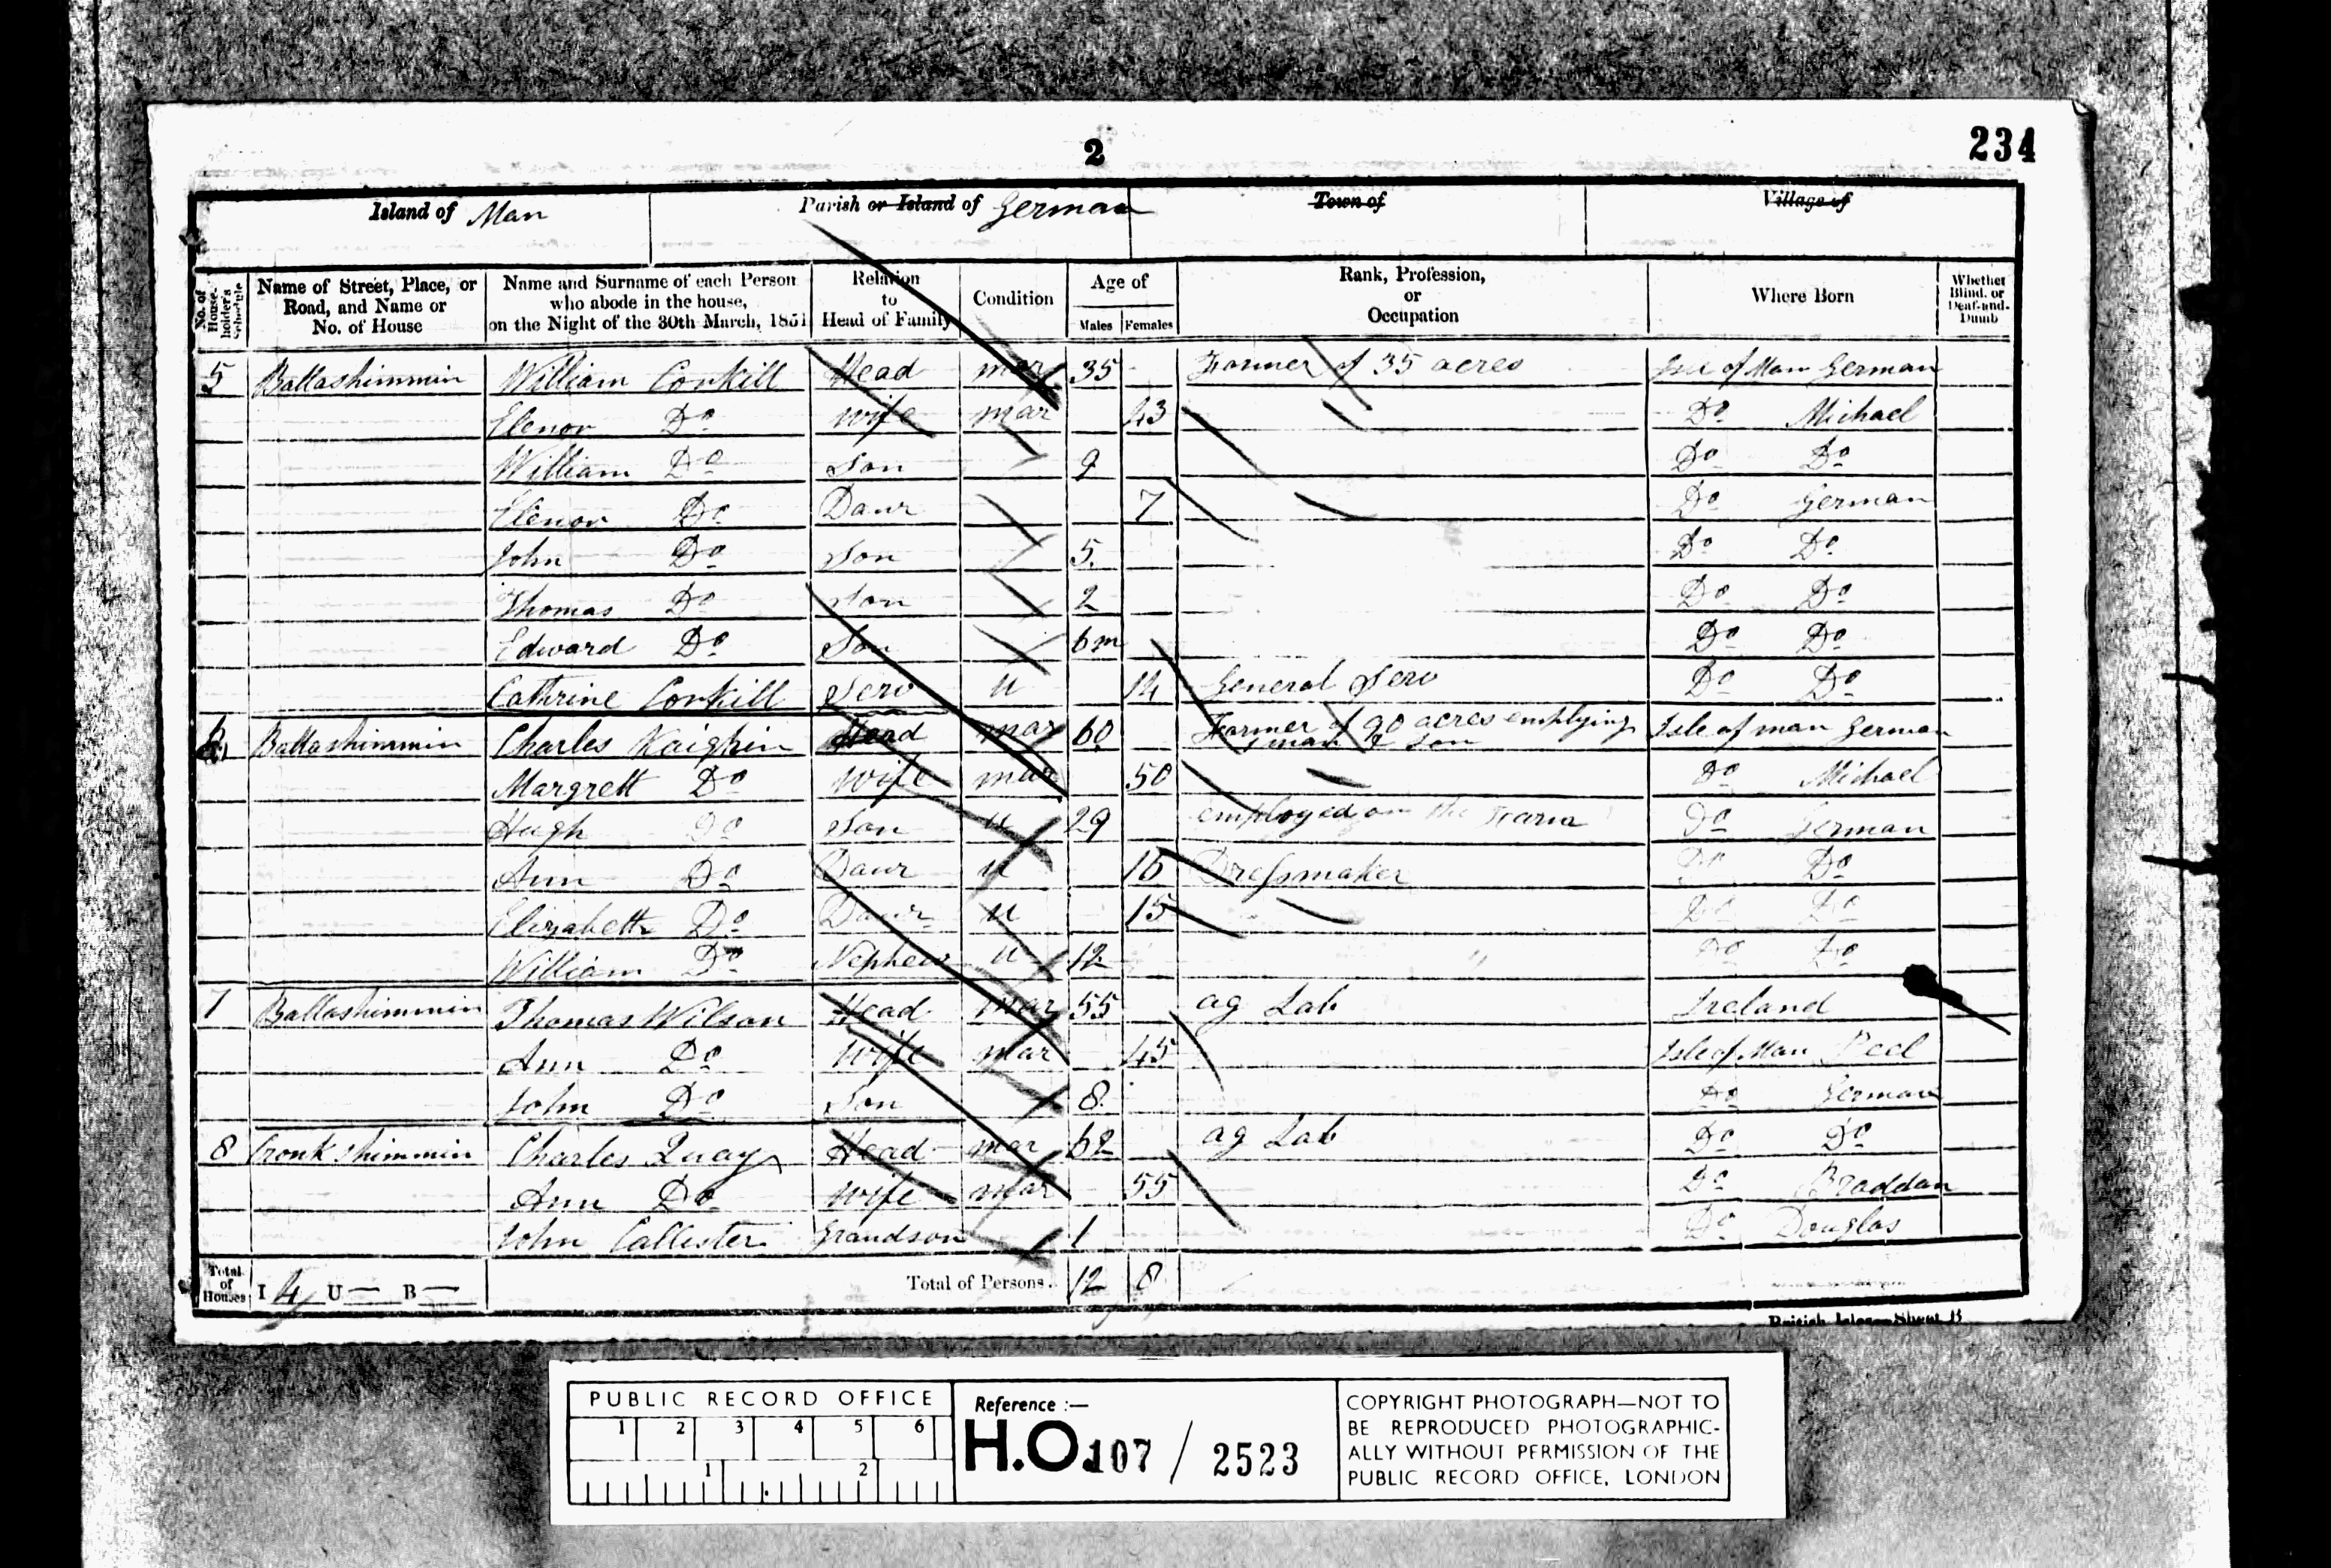 2
234
Island of Man Parish or Island of German Town of Village of
No. of Householder's Schedule Name of Street, Place, or Road, and Name or No. of House Name and Surname of each Person who abode in the house, on the Night of the 30th March, 1851 Relation to Head of Family Condition Age of Males Females Rank, Profession, or Occupation Where Born Whether Blind, or Deaf-and-Dumb
5 Ballashimmin William Corkill Head mar 35 Farmer of 35 acres Isle of Man German
Elenor Do wife mar 43 Do Michael
William Do Son 9 Do Do
Elenor Do Daur 7 Do German
John Do Son 5 Do Do
Thomas Do Son 2 Do Do
Edward Do Son 6m Do Do
Cathrine Corkill Serv U 14 General Serv Do Do
6 Ballashimmin Charles Kaighin Head mar 60 Farmer of 90 acres emplying 1 man & son Isle of man German
Margrett Do wife mar 50 Do Michael
Hugh Do Son U 29 employed on the Farm Do German
Ann Do Daur U 16 Dressmaker Do Do
Elizabeth Do Daur U 15 Do Do
William Do Nephew U 12 " Do Do
7 Ballashimmin Thomas Wilson Head mar 55 ag Lab Ireland
Ann Do Wife mar 45 Isle of Man Peel
John Do Son 8 Do German
8 Cronk shimmin Charles Quay Head mar 62 ag Lab Do Do
Ann Do Wife mar 55 Do Braddan
John Callister Grandson 1 Do Douglas
Total of Houses I 4 U — B — Total of Persons 12 8
British Isles—Sheet B
PUBLIC RECORD OFFICE
1 2 3 4 5 6
1 2
Reference :—
H.O. 107 / 2523
COPYRIGHT PHOTOGRAPH—NOT TO
BE REPRODUCED PHOTOGRAPHIC-
ALLY WITHOUT PERMISSION OF THE
PUBLIC RECORD OFFICE, LONDON